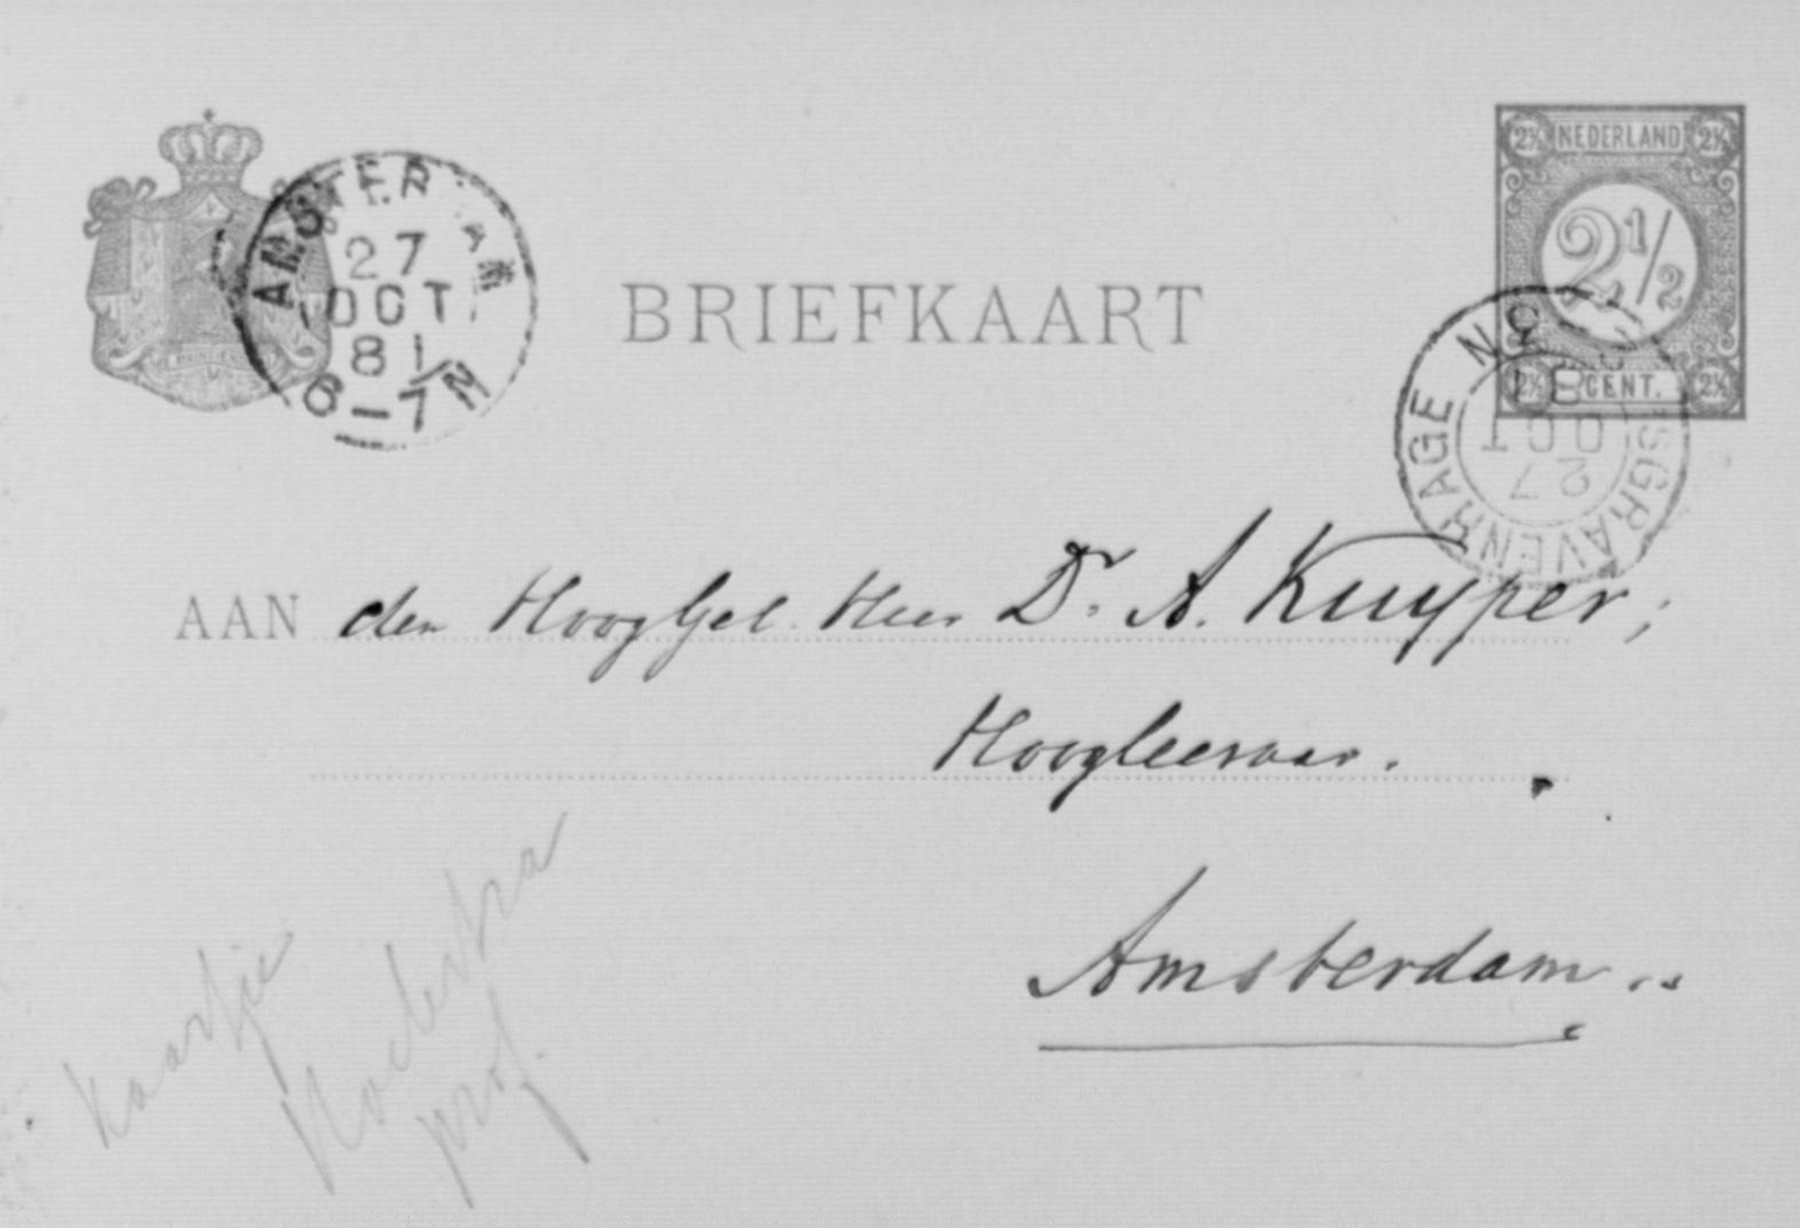 2½ NEDERLAND 2½
2½
2½ CENT. 2½
AMSTERDAM
27
OCT
81
6-7N
BRIEFKAART
'SGRAVENHAGE
27
OCT
81
AAN den HoogGel. Heer Dr. A. Kuyper,
Hoogleeraar.
Amsterdam
Kaartje
prof.